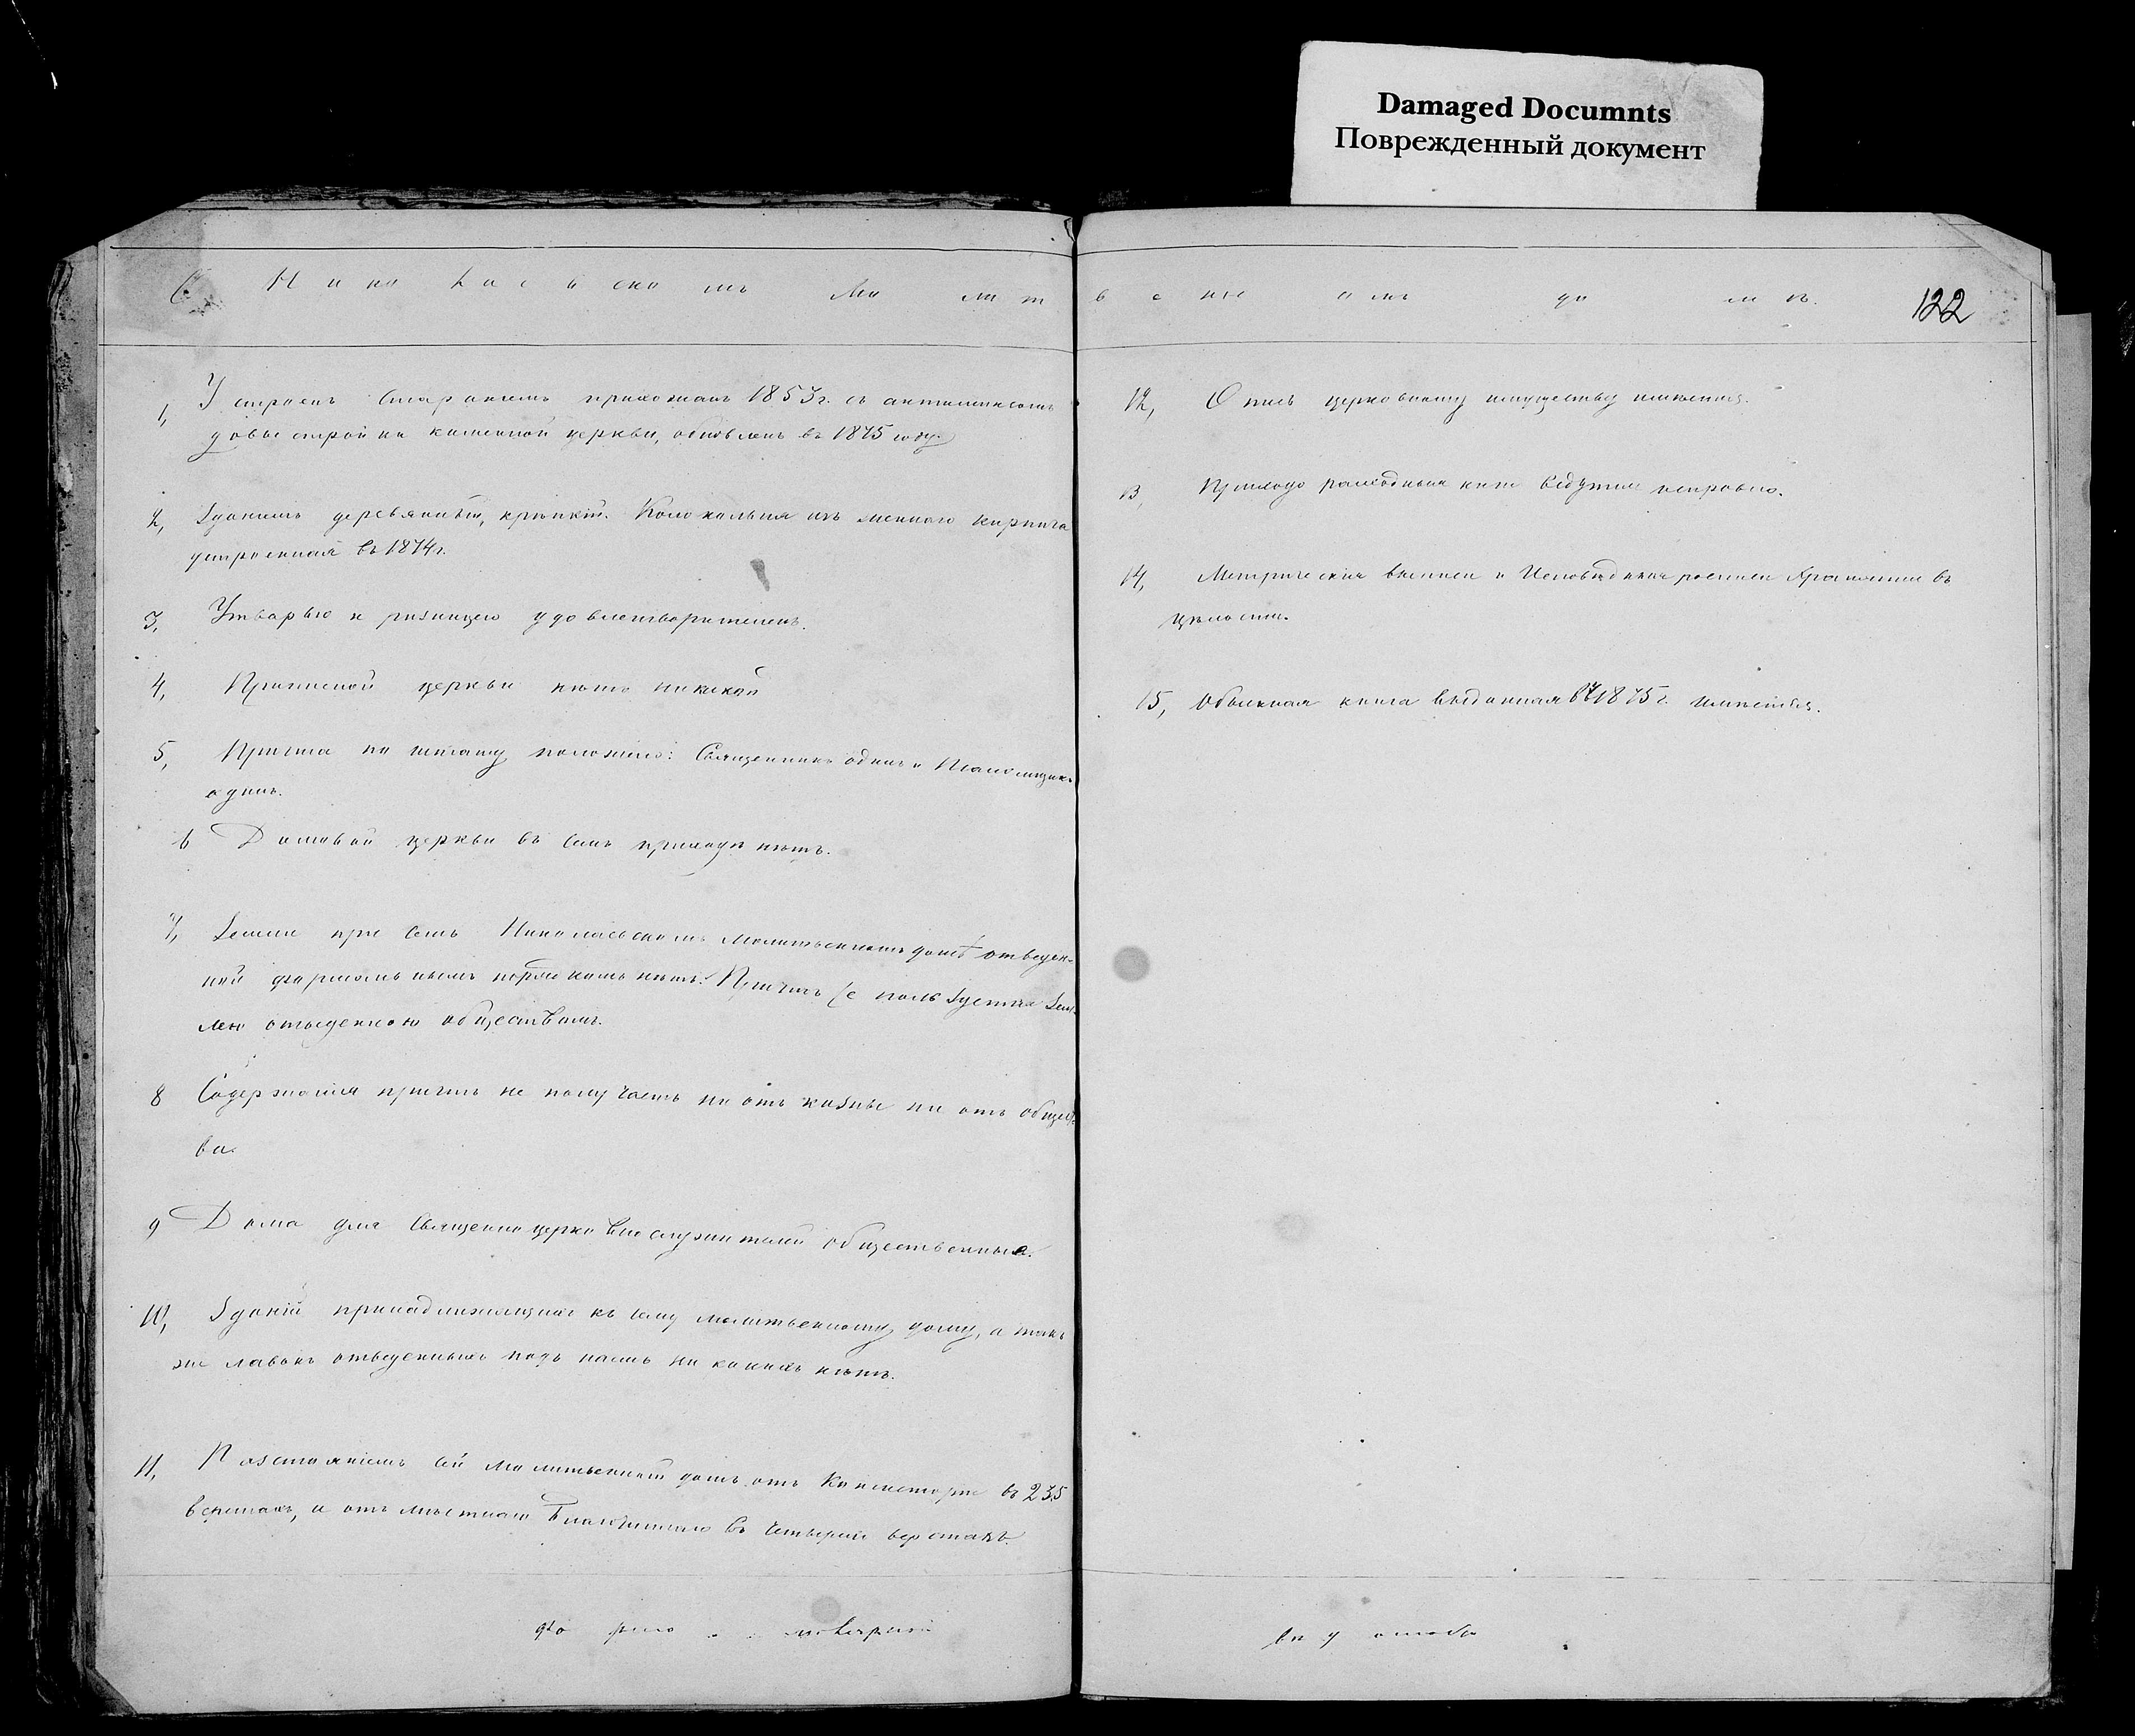 Damaged Documnts
Поврежденный документ
О Николаевскомъ Молитвенномъ домѣ.
122
1, Устроенъ стараніемъ прихожанъ 1853 г. съ антиминсомъ
до выстройки каменной церкви, обновленъ въ 1875 году.
2, Зданіемъ деревянный, крѣпкій. Колокольня изъ жженаго кирпича
устроенная въ 1874 г.
3, Утварью и ризницею удовлетворителенъ.
4, Приписной церкви нѣтъ никакой
5, Причта по штату положено: Священникъ одинъ и Псаломщикъ
одинъ.
6 Домовой церкви въ семъ приходѣ нѣтъ.
7, Земли при семъ Николаевскомъ Молитвенномъ домѣ отведен-
ной формальнымъ порядкомъ нѣтъ. Причтъ пользуется зем-
лею отведенною обществомъ.
8 Содержанія причтъ не получаетъ ни отъ казны ни отъ общест-
ва.
9 Дома для Священноцерковнослужителей общественные.
10, Зданій принадлежащихъ къ сему молитвенному дому, а такъ
же лавокъ отведенныхъ подъ наемъ ни какихъ нѣтъ.
11, Разстояніемъ сей Молитвенный домъ отъ Консисторіи въ 235
верстахъ, а отъ мѣстнаго Благочиннаго въ четырехъ верстахъ.
12, Опись церковному имуществу имѣется.
13, Приходо расходныя книги ведутся исправно.
14, Метрическія выписи и Исповѣдныя росписи хранятся въ
цѣлости.
15, Обыскная книга выданная въ 1875 г. имѣется.